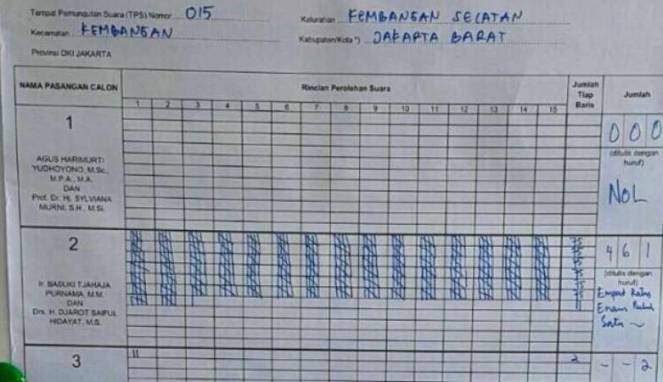 Tempat Pemungutan Suara (TPS) Nomor 015
Kelurahan KEMBANGAN SELATAN
Kecamatan KEMBANGAN
Kabupaten/Kota *) JAKARTA BARAT
Provinsi DKI JAKARTA
NAMA PASANGAN CALON
Rincian Perolehan Suara
Jumlah Tiap Baris
Jumlah
1 2 3 4 5 6 7 8 9 10 11 12 13 14 15
1
0 0 0
AGUS HARIMURTI
YUDHOYONO, M.Sc.,
M.P.A., M.A.
DAN
Prof. Dr. Hj. SYLVIANA
MURNI, S.H., M.Si.
(ditulis dengan
huruf)
NOL
2
4 6 1
Ir. BASUKI TJAHAJA
PURNAMA, M.M.
DAN
Drs. H. DJAROT SAIFUL
HIDAYAT, M.S.
(ditulis dengan
huruf)
Empat Ratus
Enam Puluh
Satu
3
2
- - 2